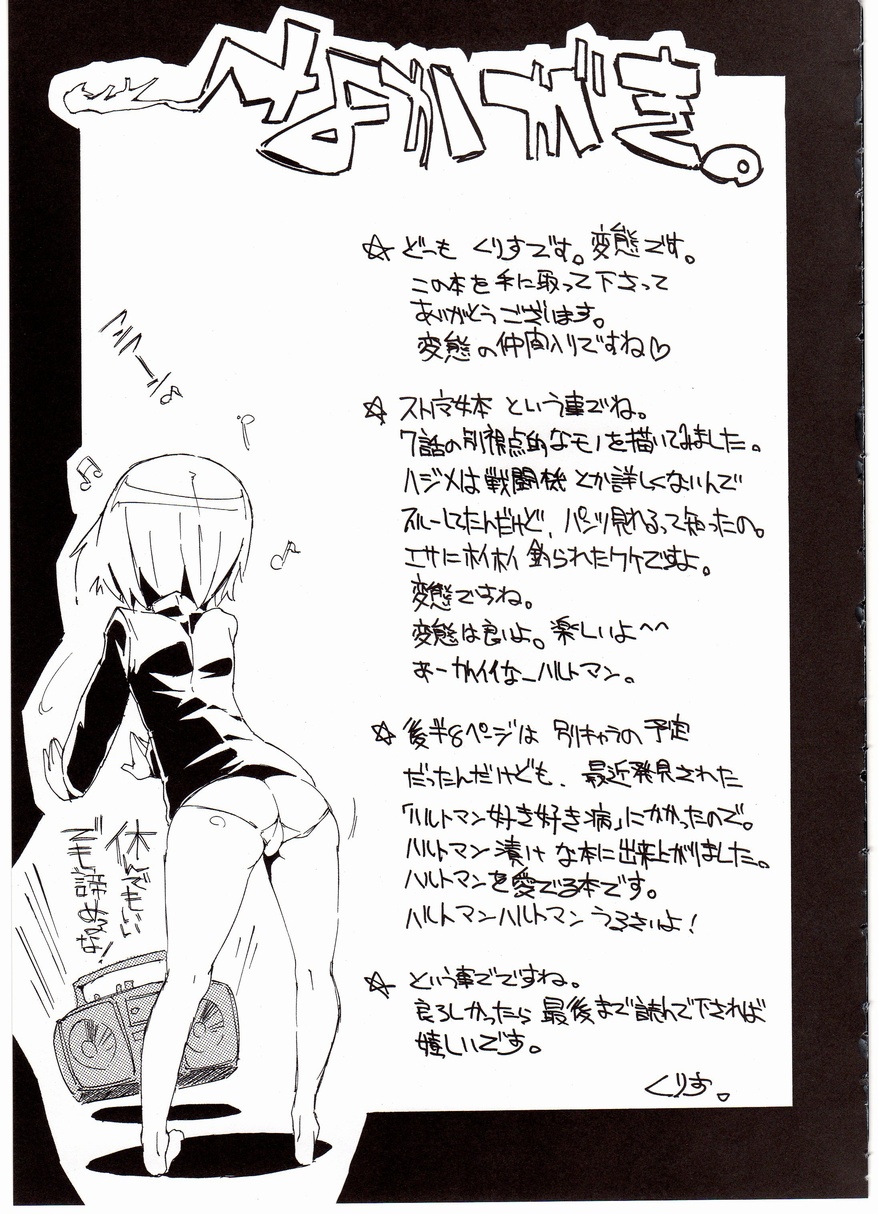 なかがき。
☆ どーも くりすです。変態です。
この本を手に取って下さって
ありがとうございます。
変態の仲間入りですね♡
☆ ストマ女本 という事でね。
7話の別視点的なモノを描いてみました。
ハジメは戦闘機とか詳しくないんで
スルーしてたんだけど、パンツ見れるって知ったの。
エサにホイホイ釣られたワケですよ。
変態ですね。
変態は良いよ。楽しいよ^^
あーかわイイなーハルトマン。
☆ 後半8ページは 別キャラの予定
だったんだけども、最近発見された
「ハルトマン好き好き病」にかかったので。
ハルトマン漬けな本に出来上がりました。
ハルトマンを愛でる本です。
ハルトマンハルトマンうるさいよ!
☆ という事でですね。
良ろしかったら最後まで読んで下されば
嬉しいです。
くりす。
休んでもいい
でも諦めるな!